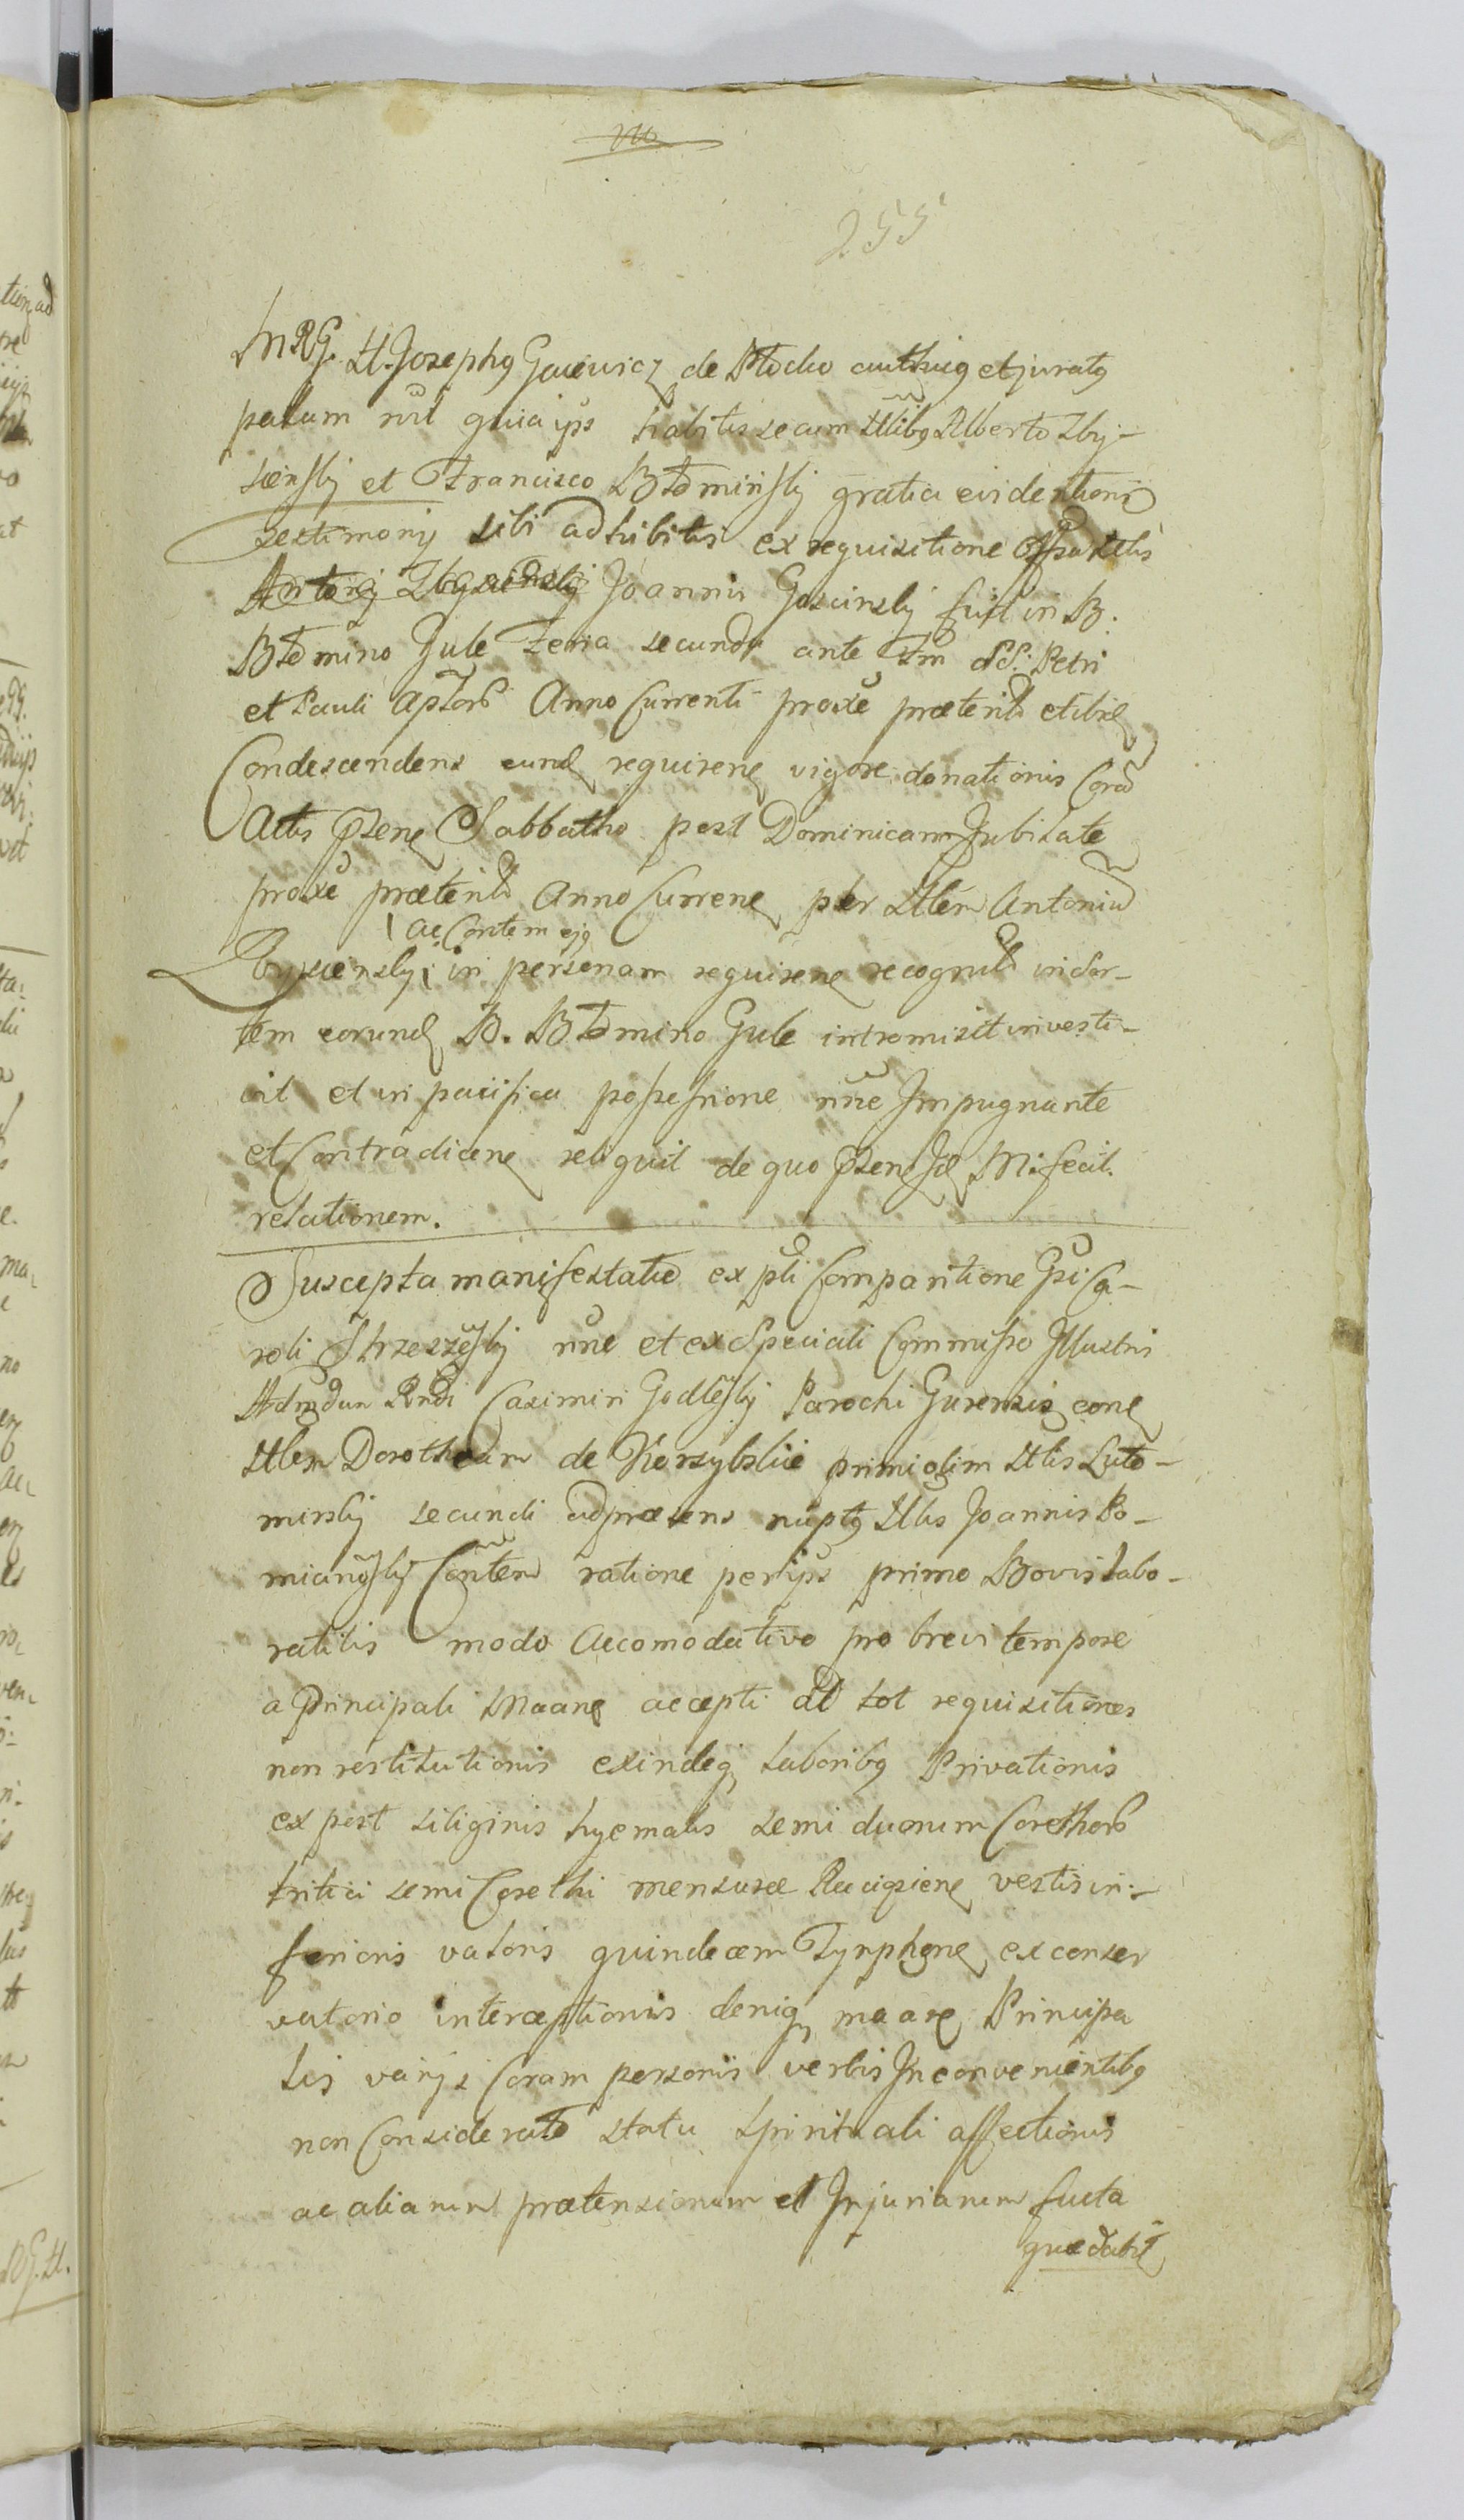 255
MRG. H. Josephg Gaiewicz de Płocko authicg et juratg
palam rūt quia ips habitis secum Nlibg Alberto Zby-
sienskij et Francisco Błominskij gratia evidentioris
testimonij sibi adhibitis ex requisitione Gsi
Joannis Goscinskij fuit in B.
Błomino Gule Feria secunda ante Ftm SS. Petri
et Pauli Aptorb Anno Currenti proxe præterito et ibid
Condescendens eund requirene vigore donationis Corā
Actis Psene Sabbatho post Dominicam Jubilate
proxe præterito Anno Currene per Nlem Antoniū
ac Contem ejg
Zbysienskij in personam requirene recognit in Sor-
tem eorund B. Błomino Gule intromisit investi-
vit et in paciifica possessione nne Impugnante
et Contradicene reliquit de quo Psene Id M. fecit
relationem.
Suscepta manifestatio ex pli Comparitione Gsi Ca-
roli Strzeszeskij nne et ex Speciali Commisso Illustris
Admdum Rndi Casimiri Godleskij Parochi Gurensis cone
Nlem Dorotheam de Korzybskie primi olim Nlis Luto-
mirskij secundi ad præsens nuptg Nlis Joannis Po-
mianoskij Contem ratione per ips primo Bovis labo-
ratilis modo Accomodativo pro brevi tempore
a Principali Maane accepti ad tot requisitiones
non restitutionis exindeq laboribg Privationis
ex post siliginis hyemalis semi duorum Corethorb
tritici semi Corethi mensuræ Raciąsiene vestis in-
ferioris valoris quindecem Tynphone ex conser
vatorio interceptionis deniq maare Principa
lis varijs Coram personis verbis Inconvenientibg
non Considerato statu Spirituali affectionis
ac aliarum prætensionum et Injuriarum facta
quæ dabit